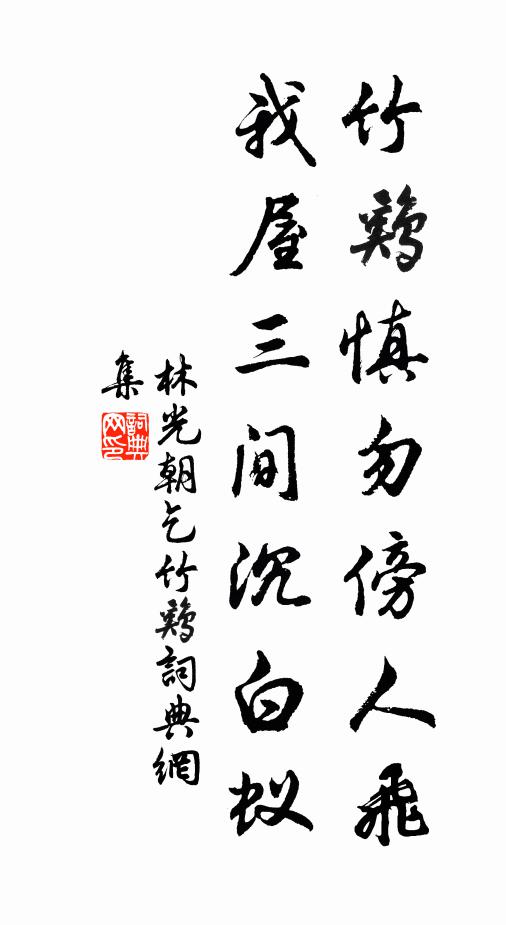 竹鷄慎勿傍人飛
我屋三间沉白蚁
林光朝乞竹鷄詞典網
集
詞典
网印